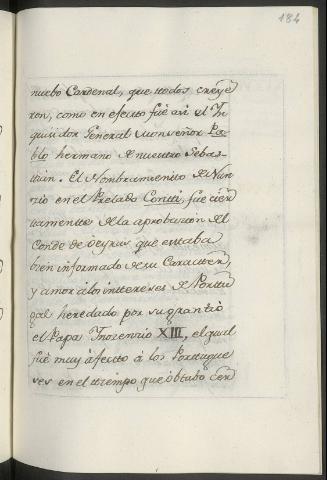 184
nuebo Cardenal, que todos creye
ron, como en efecto fuè asi el In
quisidor General Monseñor Pa
blo hermano de nuestro Sebas-
tian. El Nombramiento de Nun
zio en el Prelado Conti, fue cier
tamente de la aprobazion del
Conde de Oeyras que estaba
bien informado de su Caracter,
y amor à los intereses de Portu
gal heredado por su gran tio
el Papa Inozenzio XIII, el qual
fuè muy afecto à los Portugue
ses en el tiempo que obtubo cer